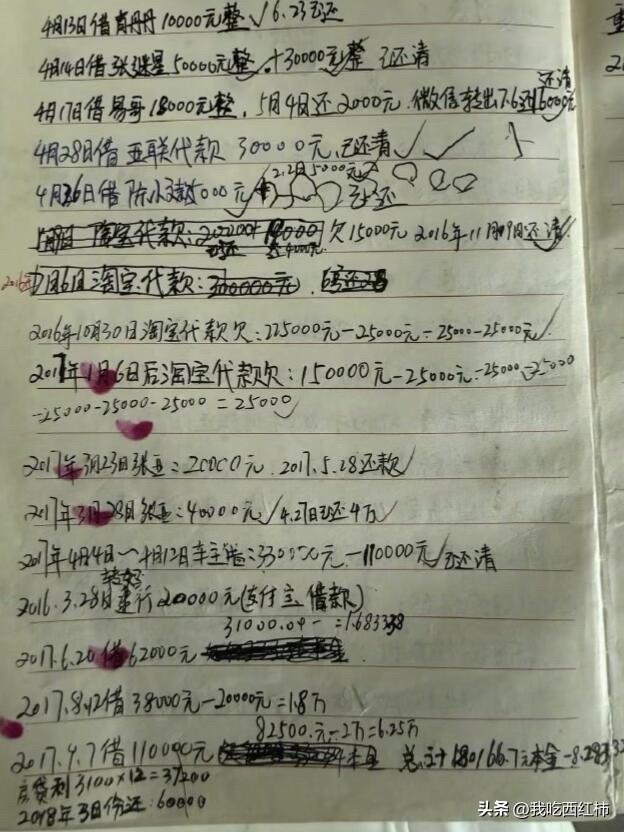 4月13日借 10000元整 √ 6.23已还
4月14日借张 50000元整 √ +30000元整 已还清
4月17日借易哥18000元整, 5月4日还2000元.微信转出7.6还16000元
还清
4月28日借亚联代款 30000元,已还清 √ √
2.2日5000元
4月26日借陈 5000元 已还
淘宝代款: 欠15000元 2016年11月09日还清
2016年7月6日淘宝代款: 200000元
2016年10月30日淘宝代款欠:225000元-25000元-25000-25000元
2017年1月6日后淘宝代款欠:150000元-25000元-25000-25000
-25000-25000-25000=25000
2017年3月23日张亚=20000元.2017.5.28还款√
2017年3月28日张亚:40000元√4.27日已还4万√
2017年4月4日~4月12日车 :330000元-110000元√已还清
2016.3.28日建行20000元(支付宝借款)
31000.04- =1.68
2017.6.20借62000元
2017.8.12借38000元-20000元=1.8万
82500.元-2万=6.25万
2017.9.7借110000元 本金 总计180166.7元本金-8.2833
房贷利3100×12=37200
2018年3月份还:60000
头条 @我吃西红柿